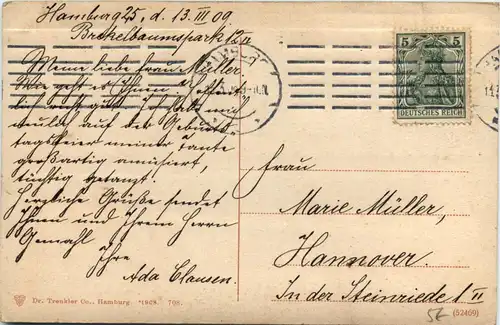 Hamburg 25, d. 13. III 09
Brekelbaumspark 12 II
Meine liebe Frau Müller,
Wie geht es Ihnen?
gut? Ich habe mich
neulich auf der Geburts-
tagsfeier meiner Tante
großartig amüsiert,
tüchtig getanzt.
Herzliche Grüße sendet
Ihnen und Ihrem Herrn
Gemahl
Ihre
Ada Clausen.
5 5
DEUTSCHES REICH
Frau
Marie Müller,
Hannover.
In der Steinriede 1 II
Dr. Trenkler Co., Hamburg *1908. 709.
(52469)